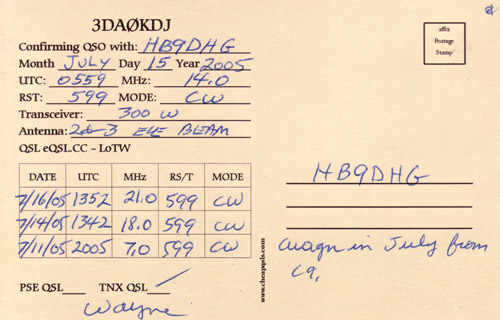 3DAØKDJ
Confirming QSO with: HB9DHG
Month JULY Day 15 Year 2005
UTC: 0559 MHz: 14.0
RST: 599 MODE: CW
Transceiver: 300 W
Antenna: 2 3 ELE BEAM
QSL eQSL.CC - LoTW
DATE UTC MHz RS/T MODE
7/16/05 1352 21.0 599 CW
7/14/05 1342 18.0 599 CW
7/11/05 2005 7.0 599 CW
PSE QSL TNX QSL ✓
Wayne
www.cheapqsls.com
affix
Postage
Stamp
HB9DHG
in July from